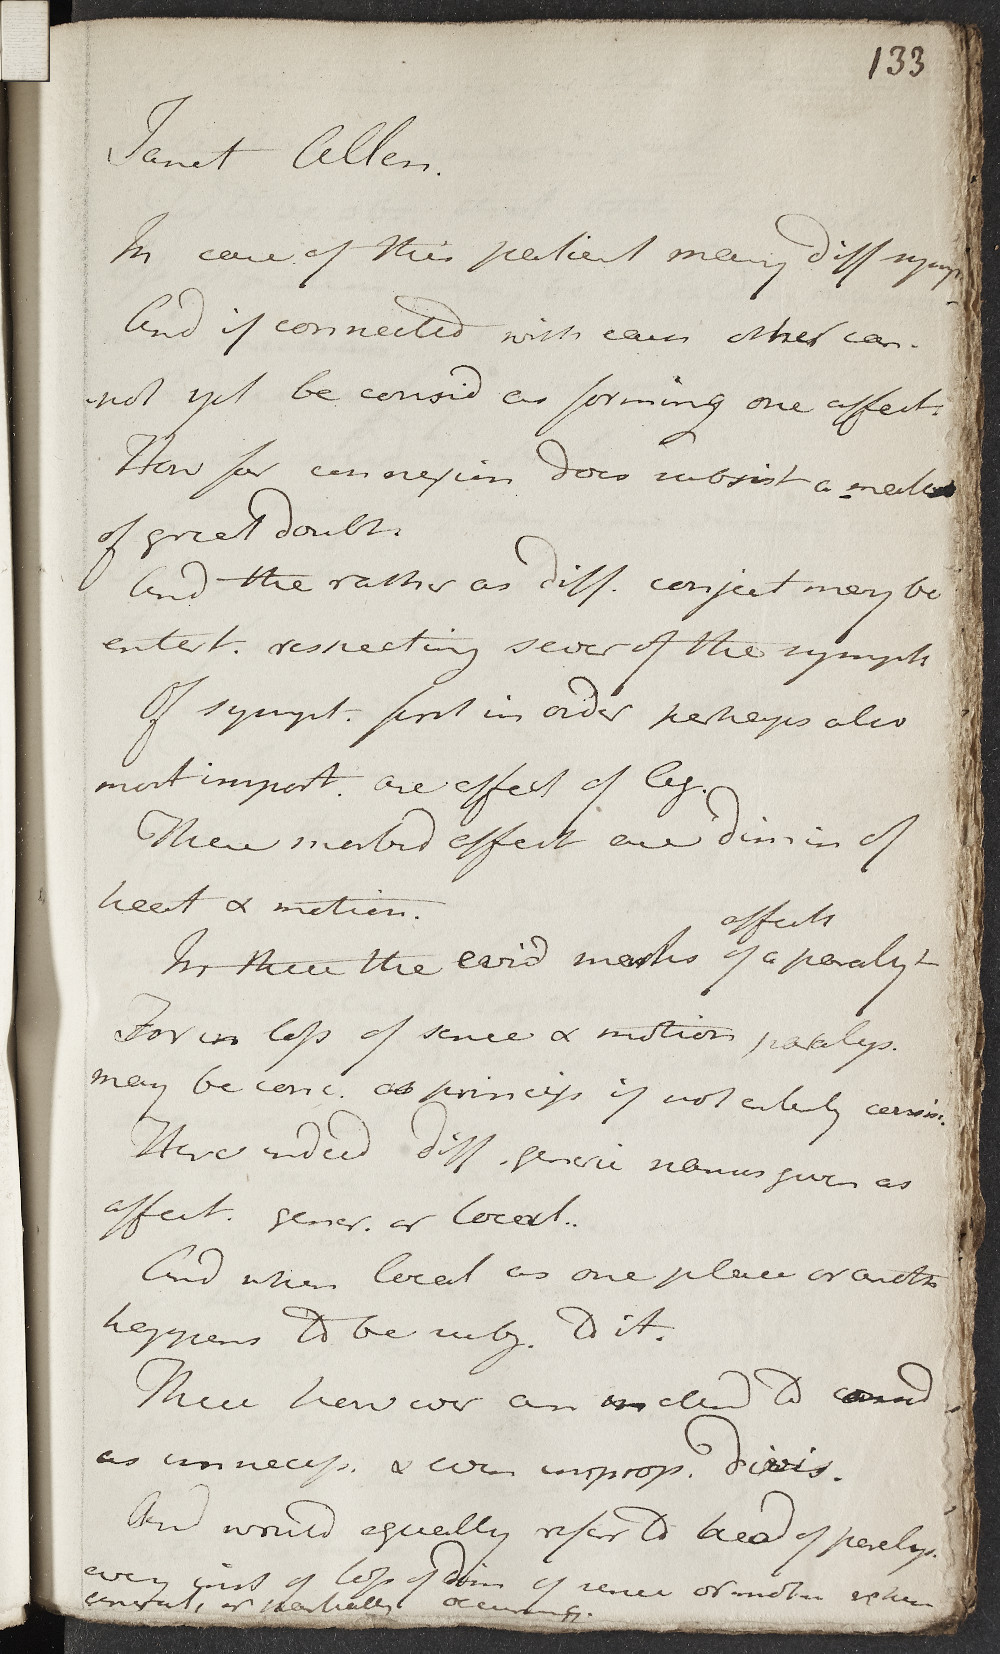 133
Janet Allen.
In case of this patient many diff symp
And if connected with each other can-
not yet be consid as forming one affect.
How far connexion does subsist a matter
of great doubt.
And the rather as diff. conject may be
entert. respecting sever of the sympt
Of sympt. first in order perhaps also
most import. are affect of leg.
These morbid affect are dimin of
heat & motion.
In these the evid marks of a paralyt
affects
For in loss of sense & motion paralys.
may be conc. as princip if not entirely consis.
Here indeed diff. generic names given as
affect. gener. or local.
And when local as one place or anoth
happens to be subj. to it.
These however am inclin'd to consid
as unnecess. & even improp. divis.
And would equally refer to head of paralys.
every inst of loss or dim of sense or motion when
general, or partially occurring.